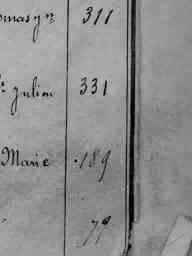 omas jnr 311
r. julien 331
Marie 189
79